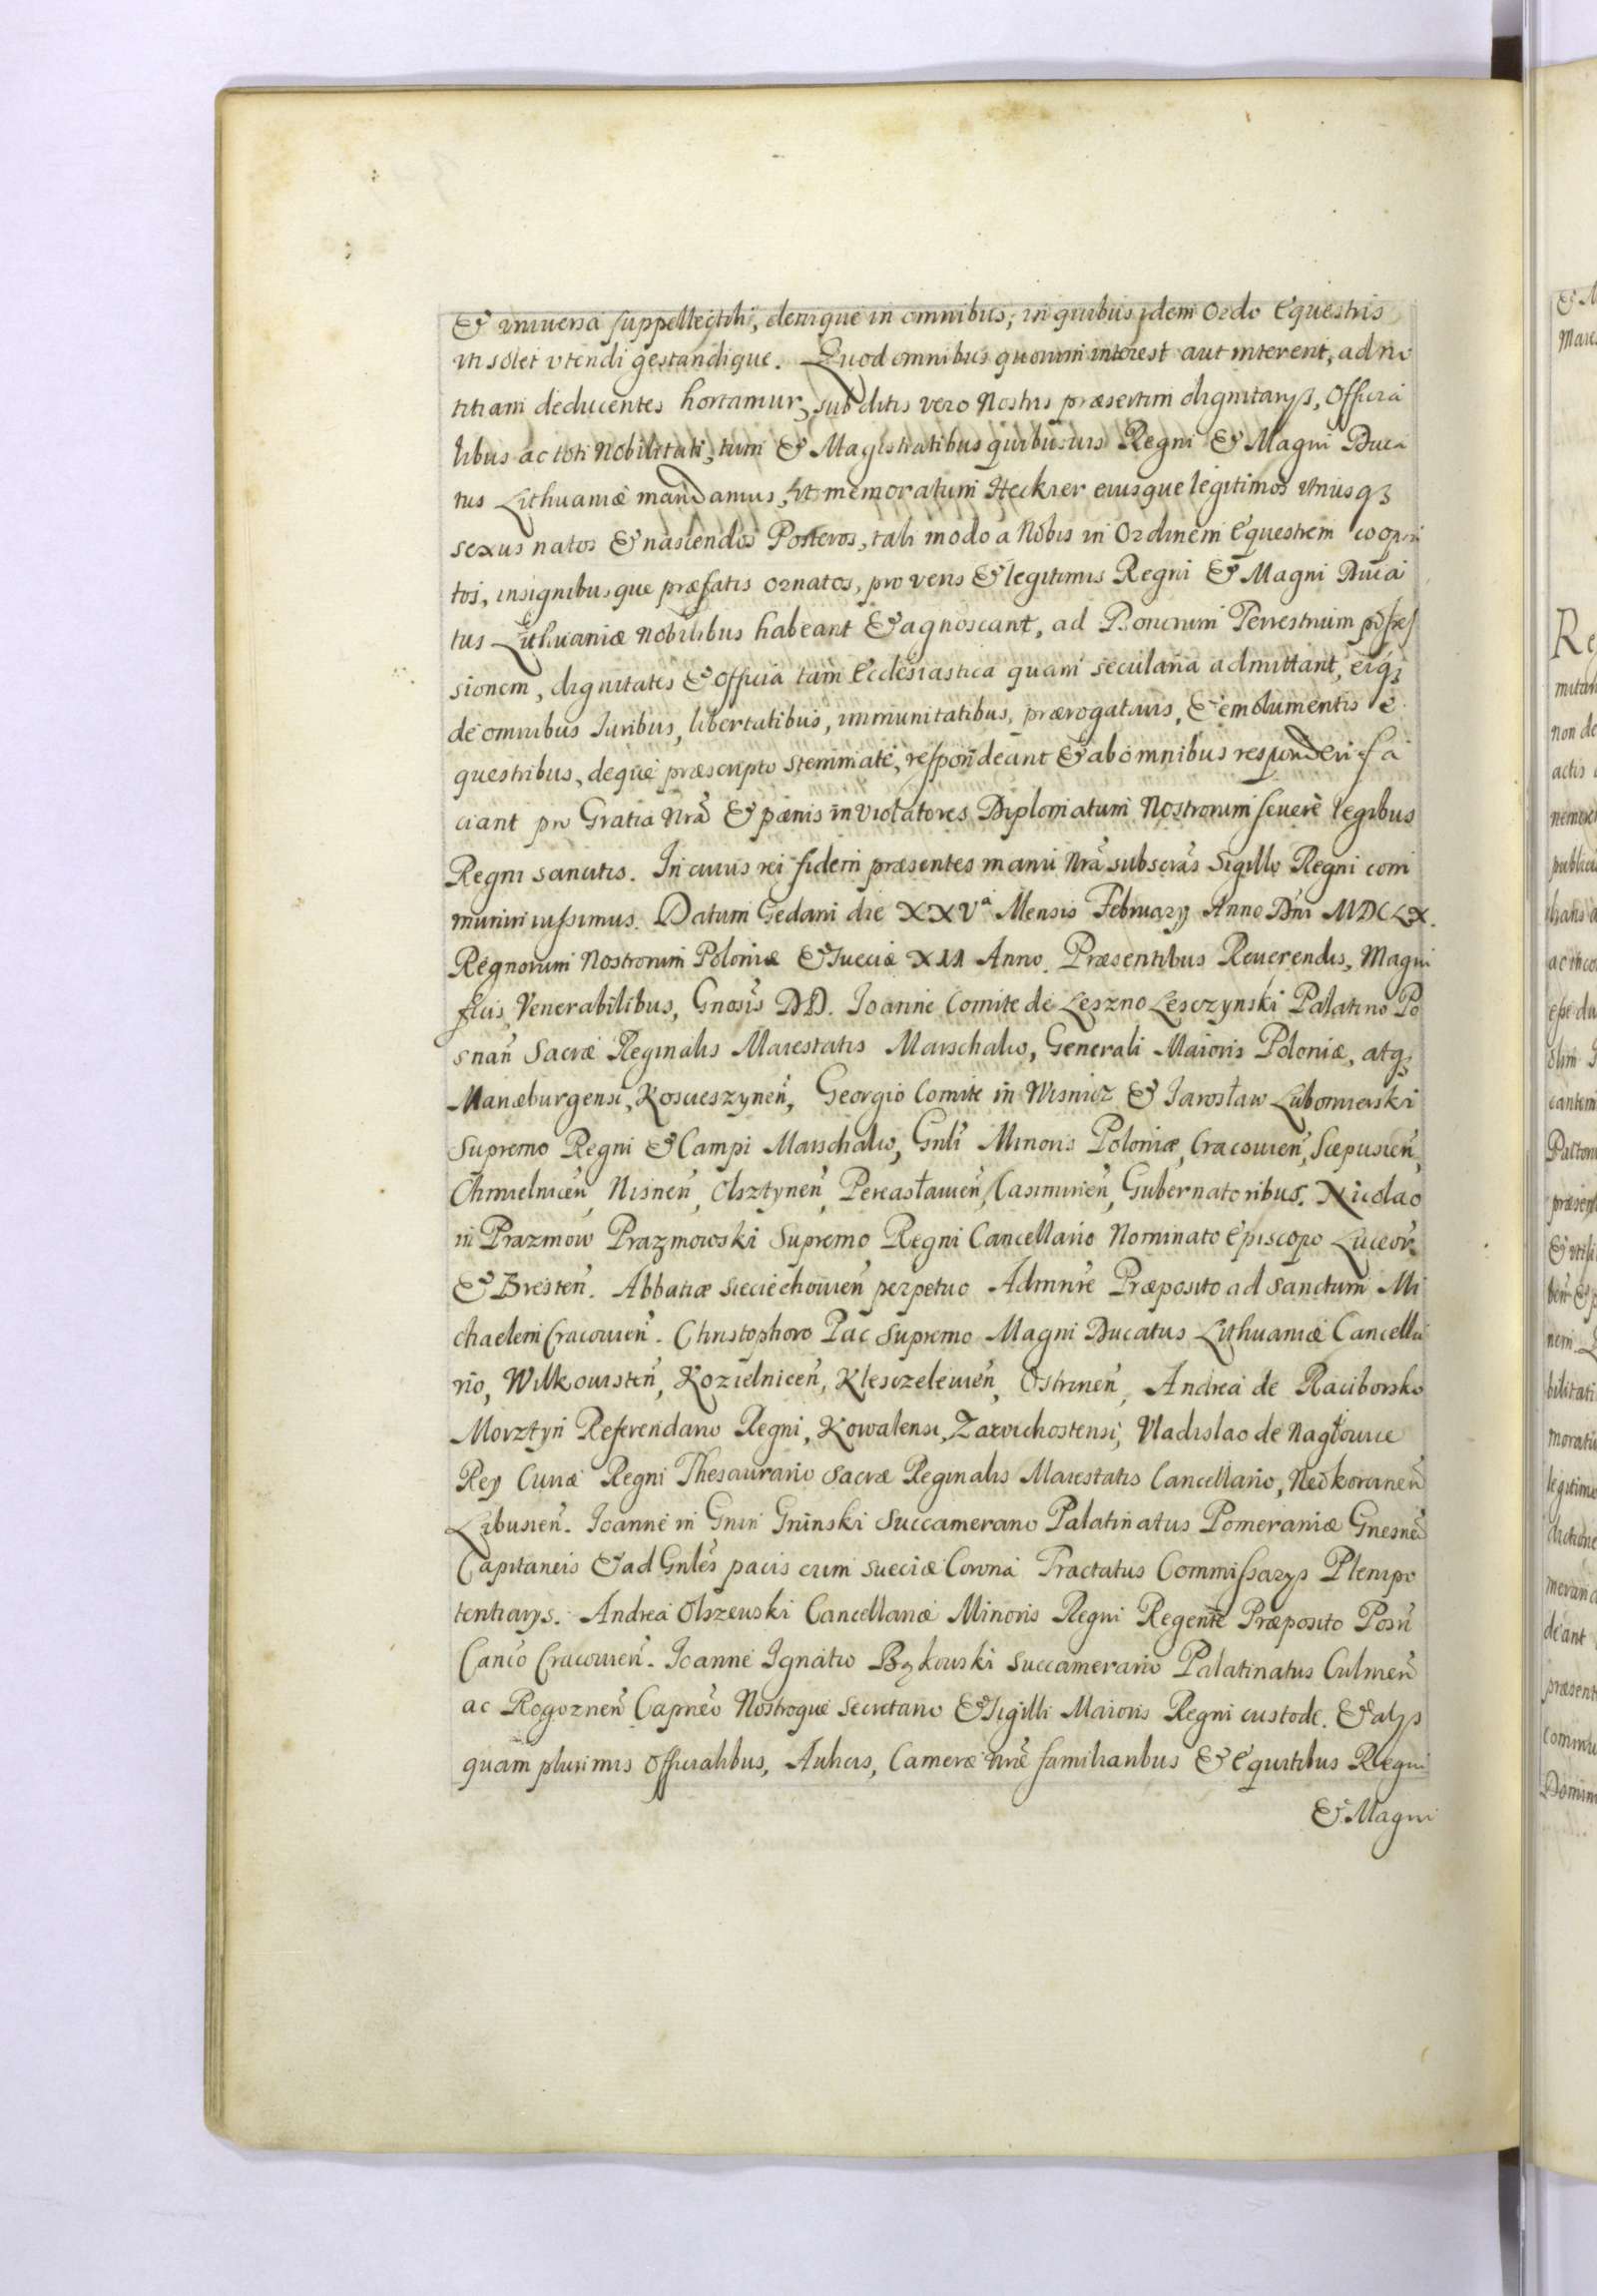 & vniuersa suppellectili, denique in omnibus, in quibus idem Ordo Equestris
vti solet vtendi gestandique. Quod omnibus quorum interest aut intererit, ad no
titiam deducentes hortamur, subditis vero Nostris præsertim dignitarijs, Officia
libus ac toti Nobilitati, tum & Magistratibus quibusuis Regni & Magni Duca
tus Lithuaniæ mandamus, vt memoratum Heckier eiusque legitimos vtriusq3
sexus natos & nascendos Posteros, tali modo a Nobis in Ordinem Equestrem coopta
tos, insignibusque præfatis ornatos, pro veris & legitimis Regni & Magni Duca
tus Lithuaniæ Nobilibus habeant & agnoscant, ad Bonorum Terrestrium posses
sionem, dignitates & Officia tam Ecclesiastica quam Secularia admittant, eiq3
de omnibus Iuribus, libertatibus, immunitatibus, prærogatiuis, & emolumentis E
questribus, deque præscripto stemmate, respondeant & ab omnibus responderi fa
ciant pro Gratia Nrã & pænis in violatores Diplomatum Nostrorum seuerè legibus
Regni sancitis. In cuius rei fidem præsentes manu Nrã subscras Sigillo Regni com
muniri iussimus. Datum Gedani die XXVa Mensis February Anno Dni MDCLX.
Regnorum Nostrorum Poloniæ & Sueciæ XII Anno. Præsentibus Reuerendis, Magni
ficis, Venerabilibus, Gnosis DD. Ioanne Comite de Leszno Lesczynski Palatino Po
snañ Sacræ Reginalis Maiestatis Marschalco, Generali Maioris Poloniæ, atq3
Mariæburgensi, Koscieszyneñ, Georgio Comite in Wisnicz & Jarosław Lubomierski
Supremo Regni & Campi Marschalco, Gnli Minoris Poloniæ, Cracouieñ, Scepusieñ,
Chmielniceñ, Nisneñ, Olsztyneñ, Pereasławieñ, Casimirieñ, Gubernatoribus. Nicolao
in Prazmow Prazmowski Supremo Regni Cancellario Nominato Episcopo Luceor
& Bresteñ. Abbatiæ Sieciechowieñ perpetuo Admnre Præposito ad Sanctum Mi
chaelem Cracouieñ. Christophoro Pac Supremo Magni Ducatus Lithuaniæ Cancella
rio, Wilkouisteñ, Kozielniceñ, Klesczelewieñ, Ostrineñ, Andrea de Raciborsko
Morztyn Referendario Regni, Kowalensi, Zawichostensi, Vladislao de Nagłowice
Rey Curiæ Regni Thesaurario Sacræ Reginalis Maiestatis Cancellario, Neokorcineñ
Libusieñ. Ioanne in Gnin Gninski Succamerario Palatinatus Pomeraniæ Gnesneñ
Capitaneis & ad Gnles pacis cum Sueciæ Corona Tractatus Commissarys Plenipo
tentiarys. Andrea Olszewski Cancellariæ Minoris Regni Regente Præposito Posñ
Canco Cracouieñ. Ioanne Ignatio Bąkowski Succamerario Palatinatus Culmeñ
ac Rogozneñ Capneo Nostroque Secretario & Sigilli Maioris Regni custode. & alys
quam plurimis Officialibus, Aulicis, Cameræ Nræ familiaribus & Equitibus Regni
& Magni